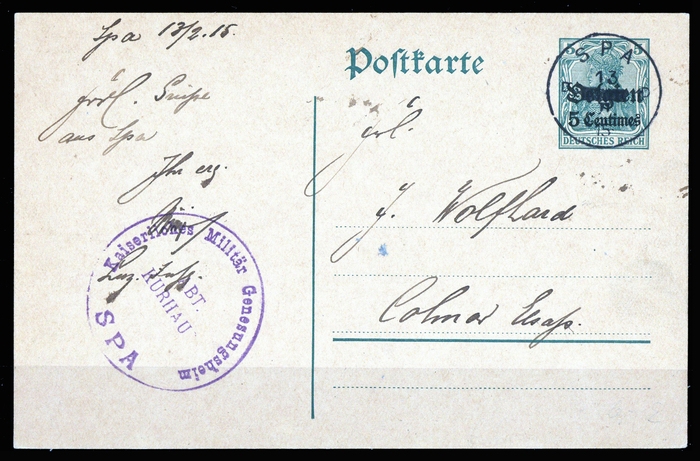 Spa 13/2.15.
frdl. Grüße
aus Spa
Ihr erg.
Kaiserliches Militär Genesungsheim
ABT.
KURHAU
SPA
Postkarte
SPA
13
15
Belgien
5 Centimes
DEUTSCHES REICH
5 5
Frl.
J. Wolfhard
Colmar Elsaß.